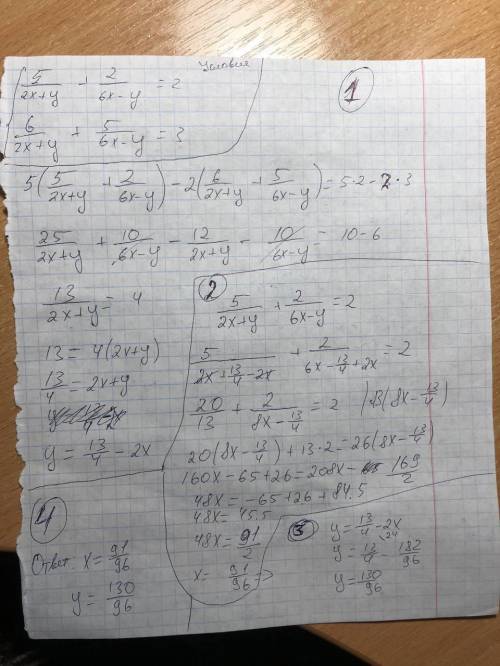 Условия
5/(2x+y) + 2/(6x-y) = 2
6/(2x+y) + 5/(6x-y) = 3
1
5(5/(2x+y) + 2/(6x-y)) - 2(6/(2x+y) + 5/(6x-y)) = 5·2 - 2·3
25/(2x+y) + 10/(6x-y) - 12/(2x+y) - 10/(6x-y) = 10-6
13/(2x+y) = 4
13 = 4(2x+y)
13/4 = 2x+y
y = 13/4 - 2x
2
5/(2x+y) + 2/(6x-y) = 2
5/(2x+13/4-2x) + 2/(6x-13/4+2x) = 2
20/13 + 2/(8x-13/4) = 2 |·13(8x-13/4)
20(8x-13/4)+13·2=26(8x-13/4)
160x-65+26=208x-169/2
48x=-65+26+84.5
48x=45.5
48x=91/2
x=91/96 =>
3
y=13/4-2x
y=13/4-182/96
y=130/96
4
Ответ: x=91/96
y=130/96